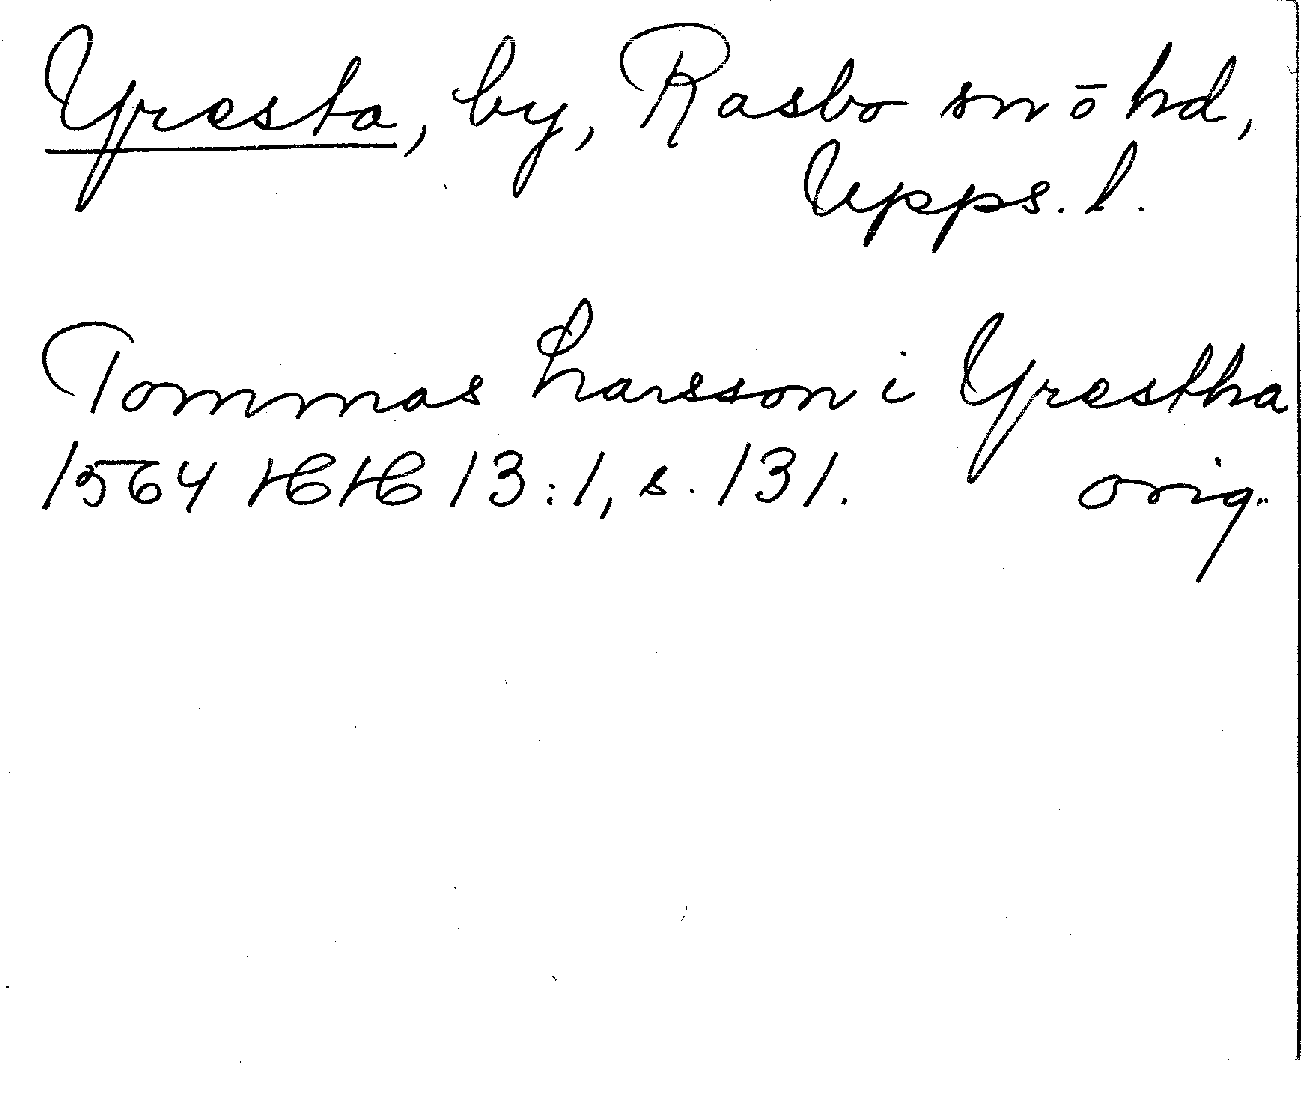 Yresta, by, Rasbo sn ō hd,
Upps. l.
Tommas Larsson i Yrestha
1564 HH 13:1, s. 131. orig.